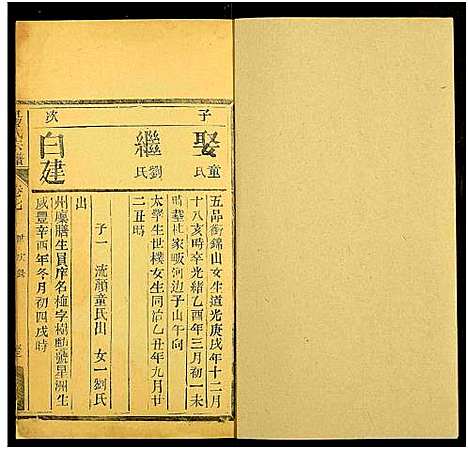 子
娶童氏
五品銜錦山女生道光庚戌年十二月
十八亥時卒光緒乙酉年三月初一未
時葬杜家畈河邊子山午向
繼劉氏
太學生世樸女生同治乙丑年九月廿
二丑時
子一 流顏童氏出 女一劉氏
出
次
白建
州廩膳生員庠名極字樹勳號星洲生
咸豐辛酉年冬月初四戌時
氏宗譜